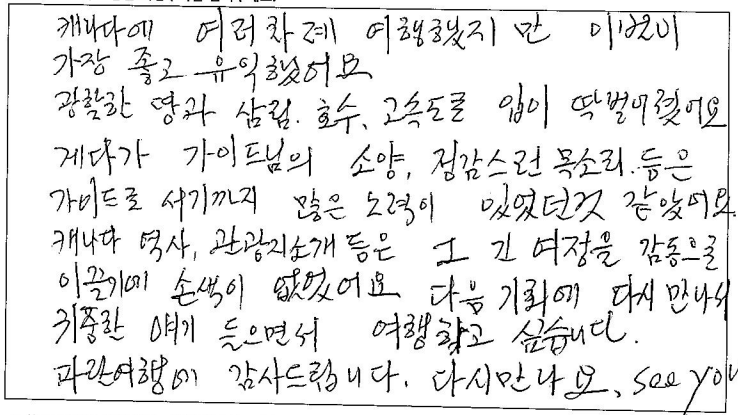 캐나다에 여러차례 여행했지만 이번이
가장 좋고 유익했어요
광활한 땅과 삼림. 호수, 고속도로 입이 딱벌어졌어요
게다가 가이드님의 소양, 정감스런 목소리. 등은
가이드로 서기까지 많은 노력이 있었던것 같았어요.
캐나다 역사, 관광지소개 등은 그 긴 여정을 감동으로
이끌기에 손색이 없었어요 다음 기회에 다시 만나서
귀중한 얘기 들으면서 여행하고 싶습니다.
파란여행에 감사드립니다. 다시만나요, see you